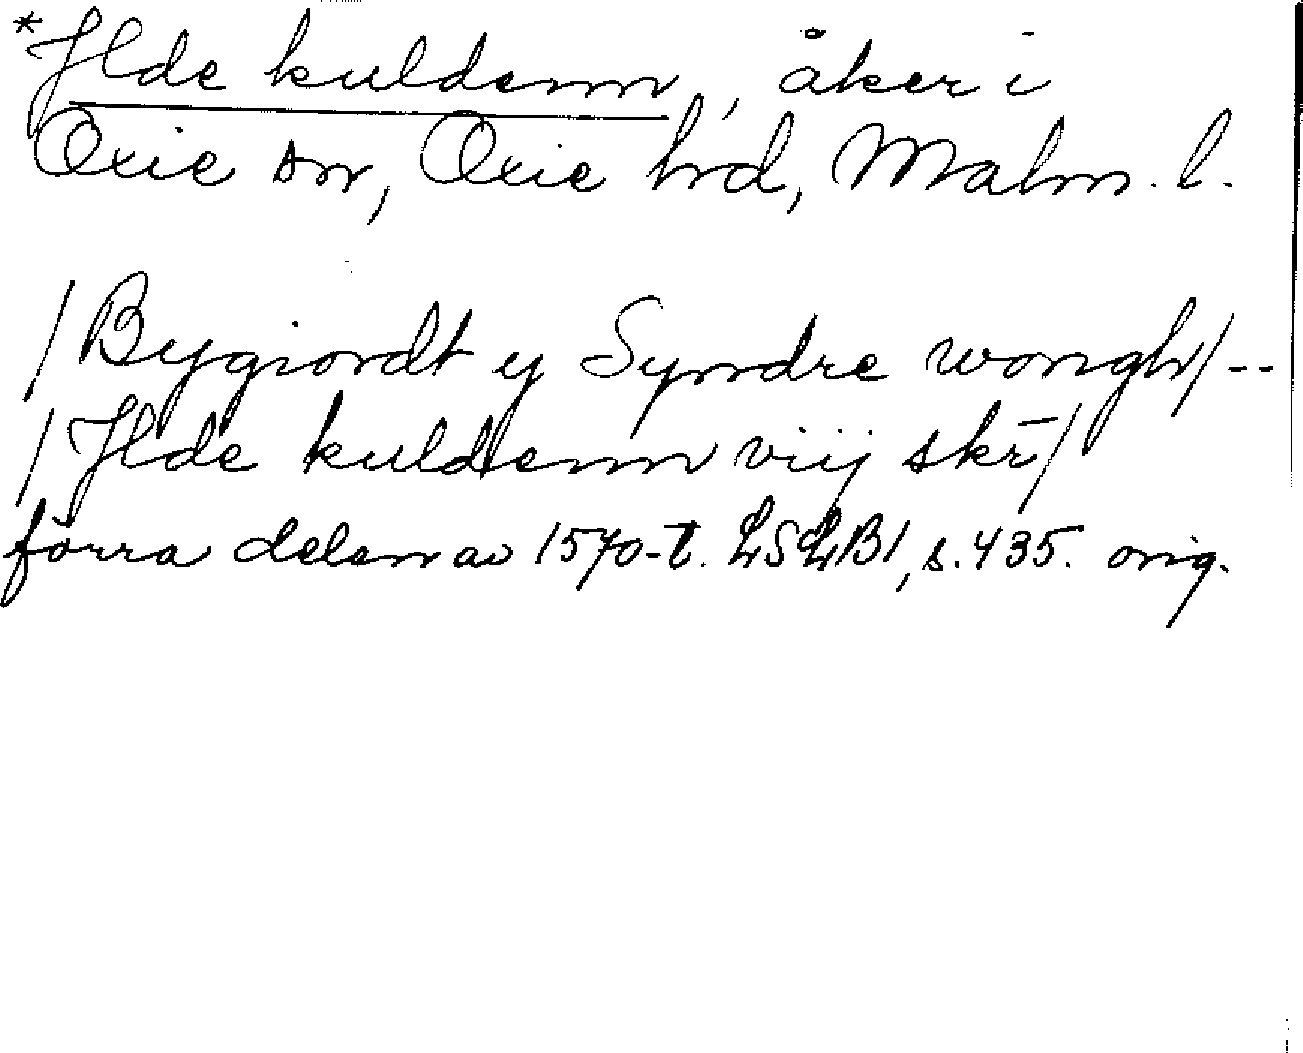 *Jlde kuldenn, åker i
Oxie sn, Oxie hd, Malm. l.
/Bygiordt y Syndre wongh/--
/Jlde kuldenn viij skr̄/
förra delen av 1570-t. LSLB1, s. 435. orig.